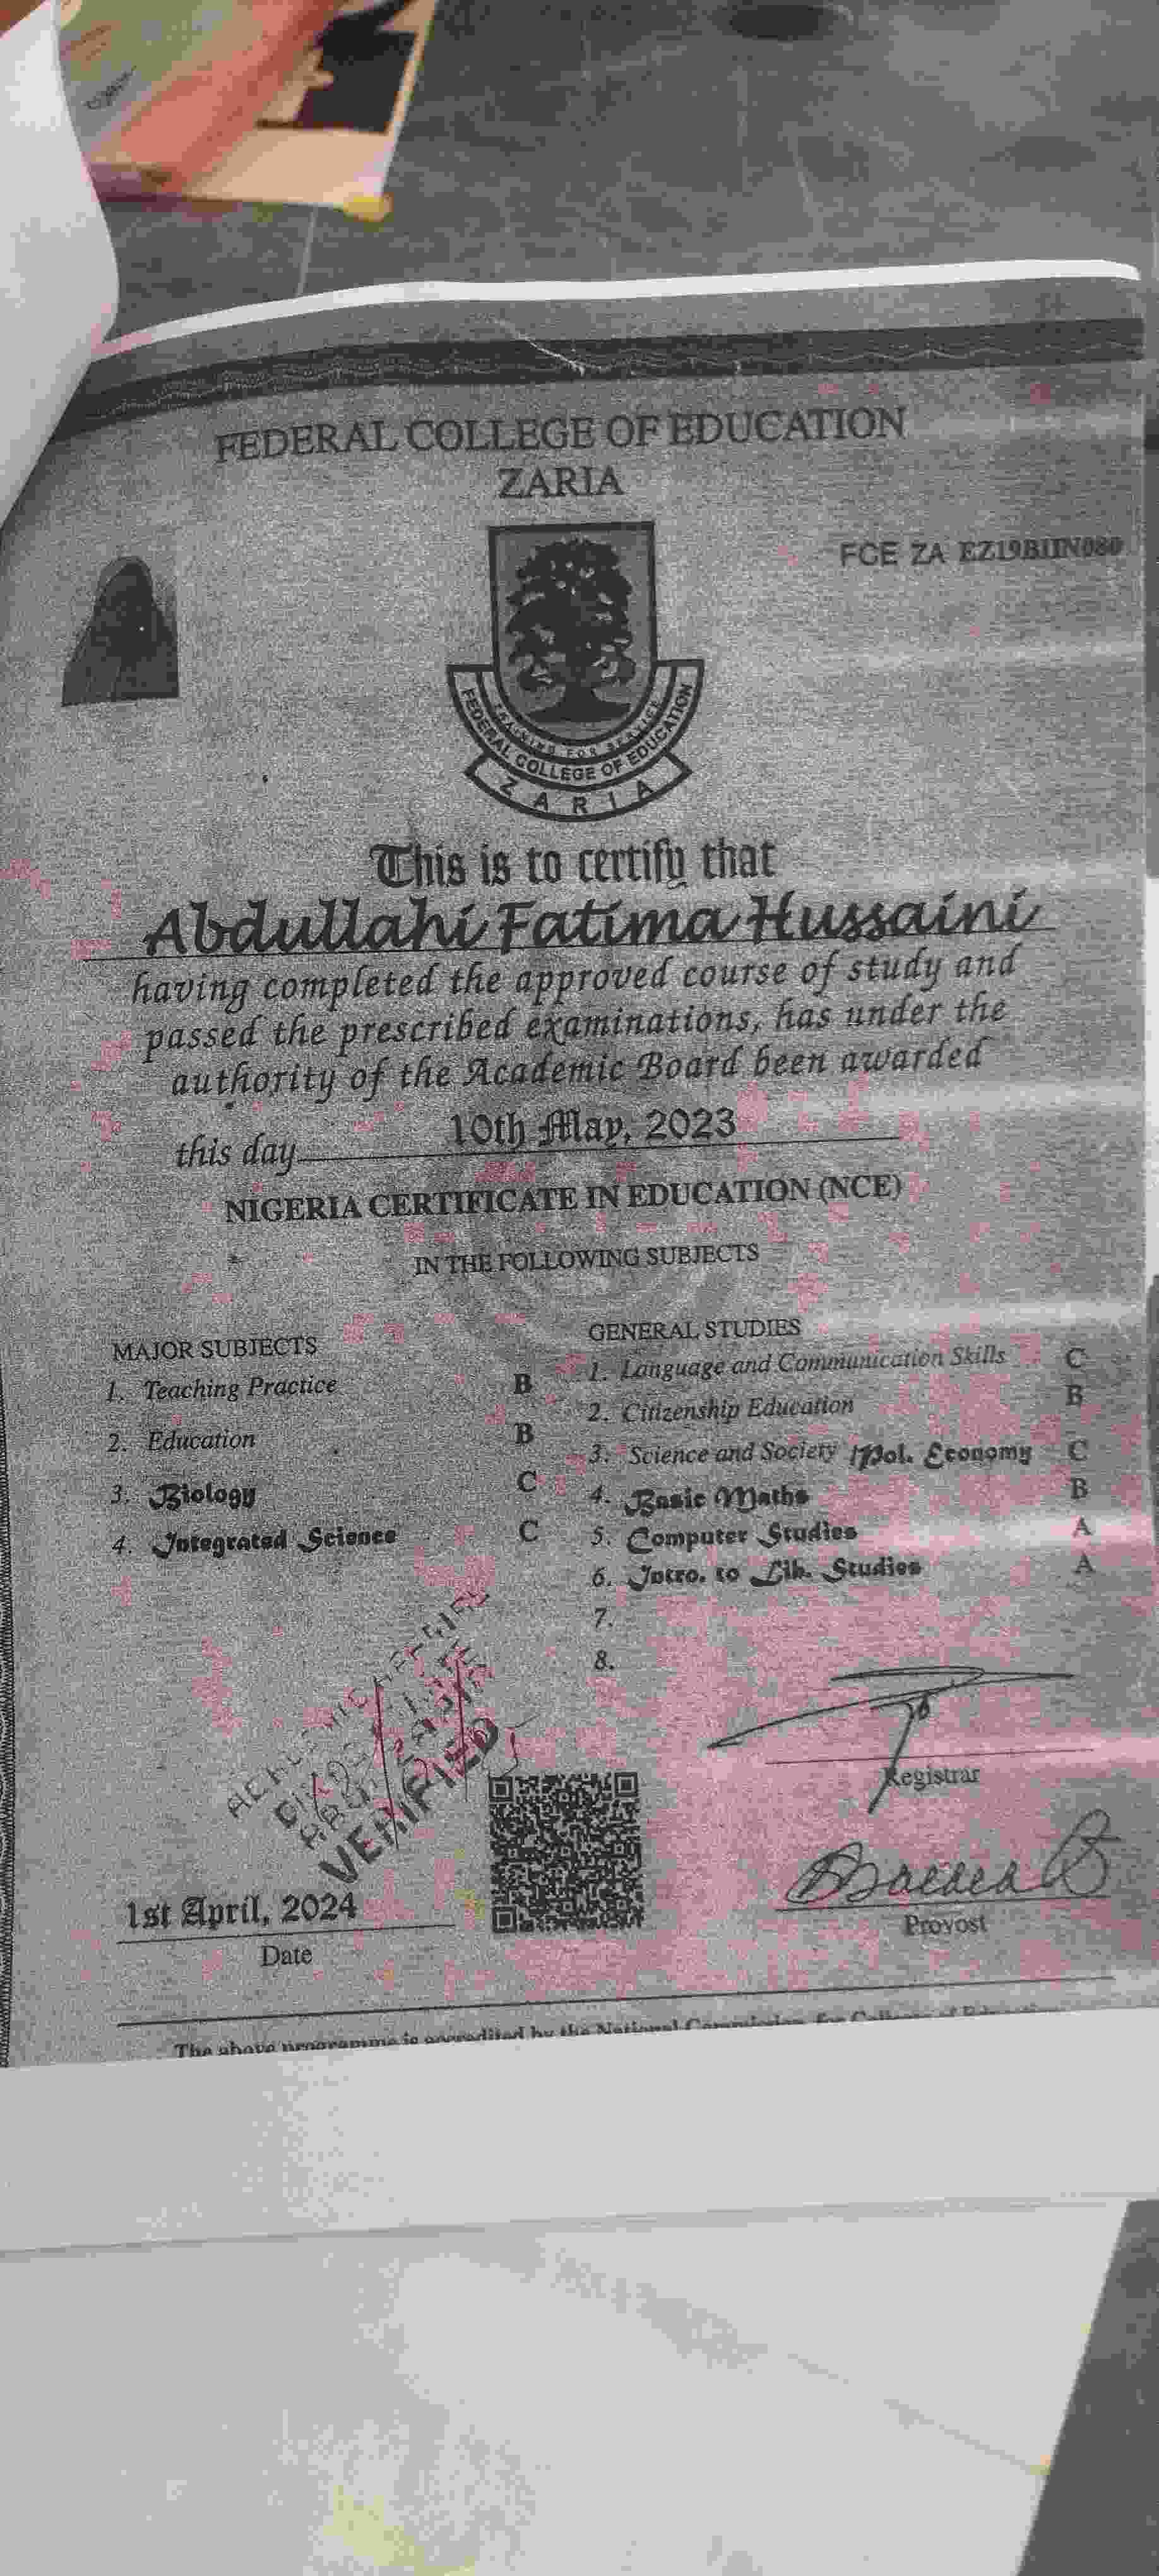 FEDERAL COLLEGE OF EDUCATION
ZARIA
FCE ZA EZ19BIIN080
TRAINING FOR SERVICE
FEDERAL COLLEGE OF EDUCATION
ZARIA
This is to certify that
Abdullahi Fatima Hussaini
having completed the approved course of study and
passed the prescribed examinations, has under the
authority of the Academic Board been awarded
this day 10th May, 2023
NIGERIA CERTIFICATE IN EDUCATION (NCE)
IN THE FOLLOWING SUBJECTS
MAJOR SUBJECTS
1. Teaching Practice B
2. Education B
3. Biology C
4. Integrated Science C
GENERAL STUDIES
1. Language and Communication Skills C
2. Citizenship Education B
3. Science and Society /Pol. Economy C
4. Basic Maths B
5. Computer Studies A
6. Intro. to Lib. Studies A
7.
8.
VERIFIED
Registrar
1st April, 2024
Date
Provost
The above programme is accredited by the National Commission for Colleges of Education